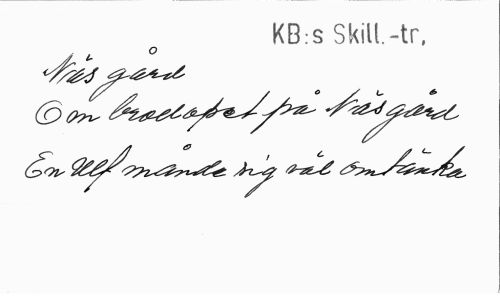 KB:s Skill.-tr,
Näs gård
Om brodopet på Näs gård
En Ulf månde sig väl omtänka